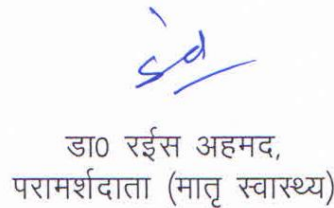 डा0 रईस अहमद,
परामर्शदाता (मातृ स्वास्थ्य)